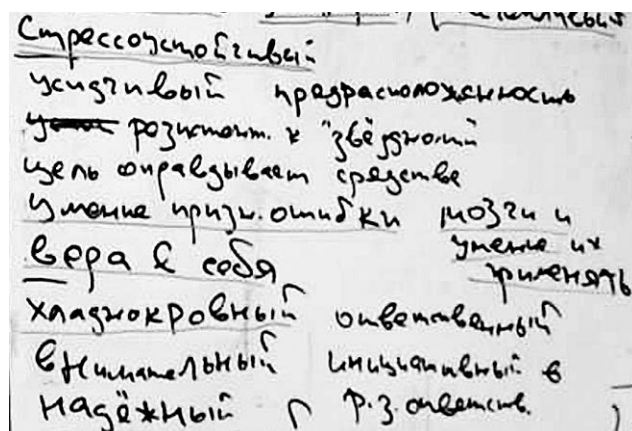 Стрессоустойчивый
усидчивый предрасположенность
розистент. к "звёздной
цель оправдывает средства
умение призн. ошибки мозги и
умение их
вера в себя применять
хладнокровный ответственный
внимательный инициативный в
надёжный р.з. ответств.